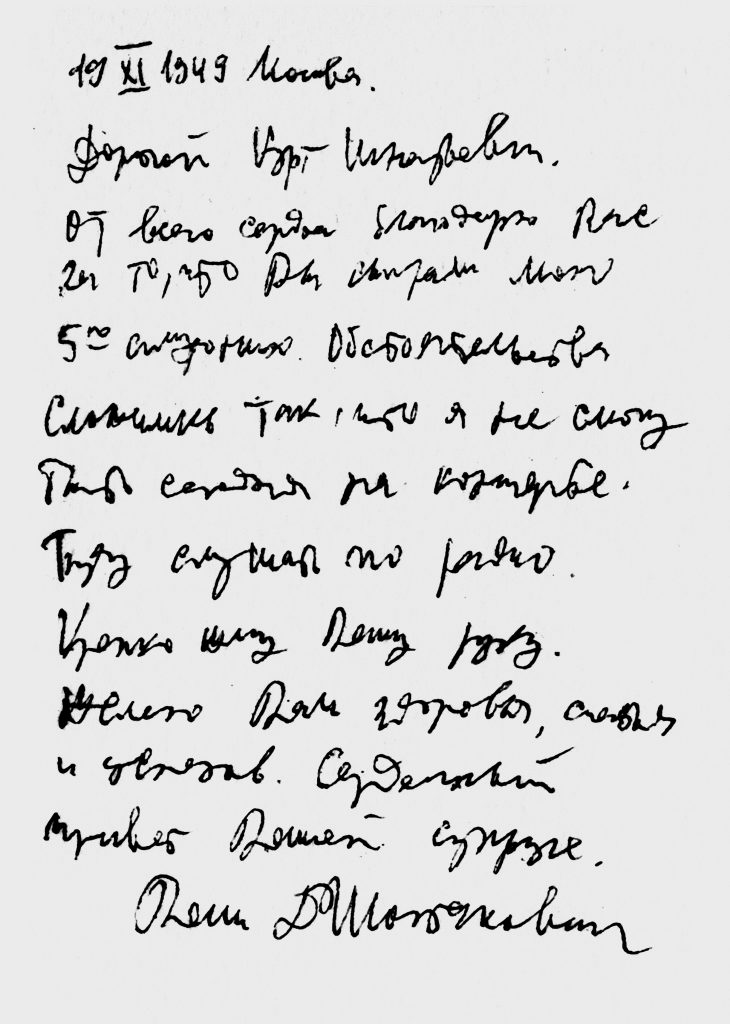 19 XI 1949 Москва.
Дорогой Курт Игнатьевич.
От всего сердца благодарю Вас
за то, что Вы сыграли мою
5ую симфонию. Обстоятельства
сложились так, что я не смогу
быть сегодня на концерте.
Буду слушать по радио.
Крепко жму Вашу руку.
Желаю Вам здоровья, счастья
и успехов. Сердечный
привет Вашей супруге.
Ваш ДШостакович